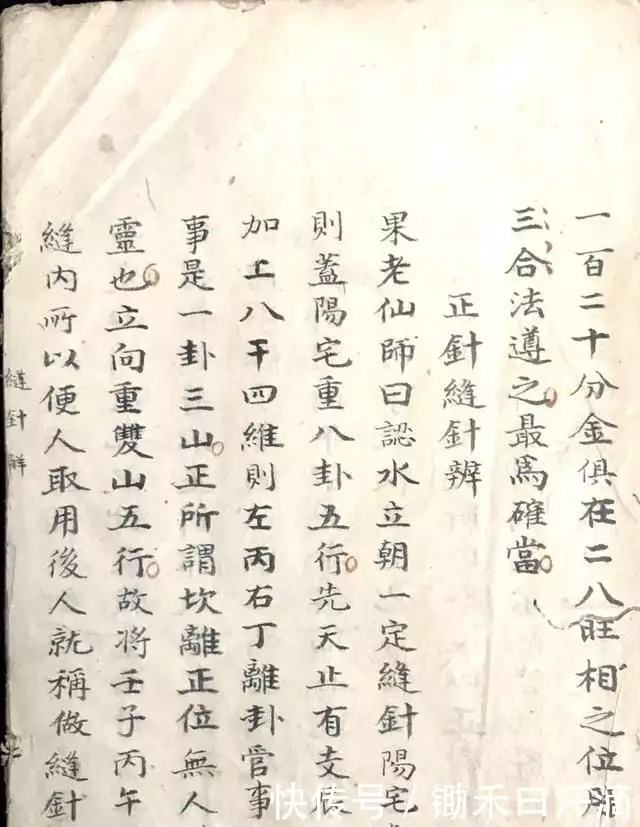 一百二十分金俱在二八旺相之位
三合法遵之最為確當
正針縫針辨
果老仙師曰認水立朝一定縫針陽宅
則蓋陽宅重八卦五行先天止有支
加工八干四維則左丙右丁離卦管事
事是一卦三山正所謂坎離正位無人
靈也立向重雙山五行故将壬子丙午
縫內所以便人取用後人就稱做縫針
縫針
快传号/锄禾日